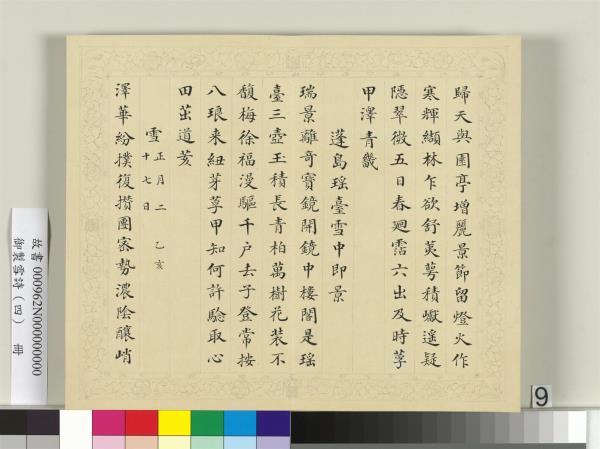 歸天與園亭增麗景節留燈火作
寒輝纈林乍欲舒蓂萼積巘遙疑
隱翠微五日春廻霑六出及時莩
甲澤青畿
蓬島瑤臺雪中即景
瑞景離奇寶鏡開鏡中樓閣是瑤
臺三壺玉積長青柏萬樹花裝不
馥梅徐福漫驅千戶去子登常按
八琅来紐芽莩甲知何許騐取心
田茁道荄
雪 正月二十七日 乙亥
澤華紛撲復攢團密勢濃陰釀峭
故書 000962N000000000
御製雪詩(四) 冊
9